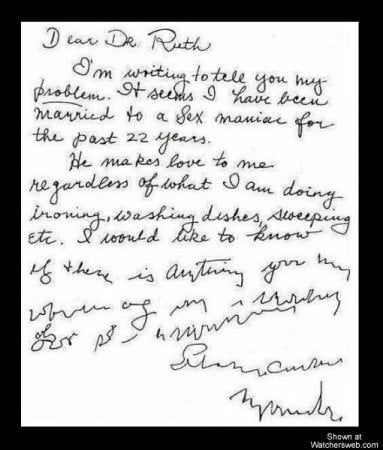 Dear Dr. Ruth
I'm writing to tell you my
problem. It seems I have been
married to a sex maniac for
the past 22 years.
He makes love to me
regardless of what I am doing
ironing, washing dishes, sweeping
etc. I would like to know
if there is anything you my
Shown at
Watchersweb.com